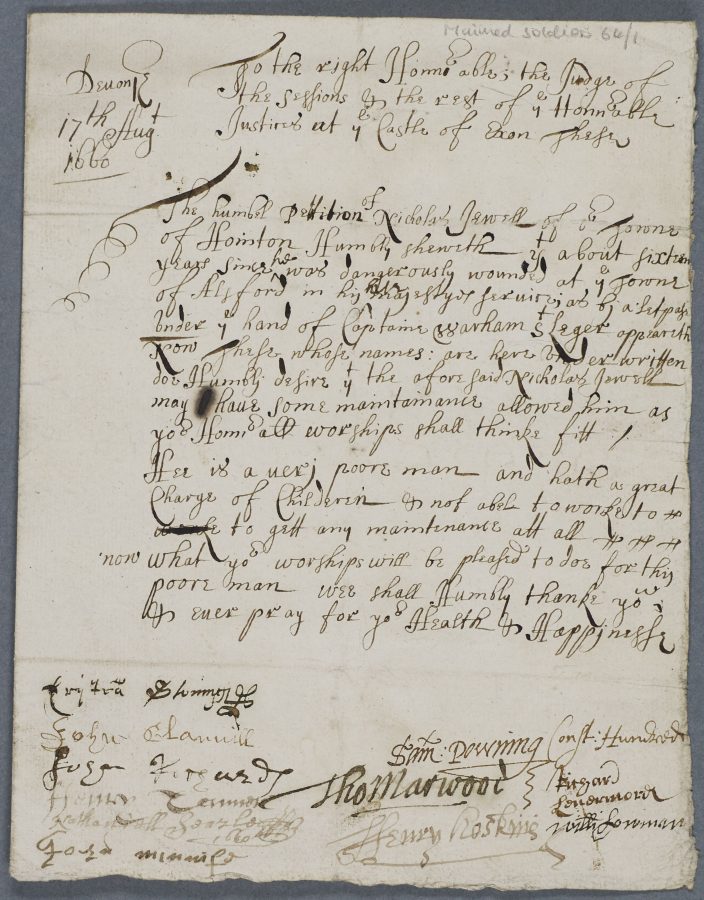 Maimed soldiers 64/1
Devon
17th Augt
1660
To the right Honorable; the Judge of
the sessions & the rest of ye Honnorable
Justices at ye Castle of Exon These
The humbel Petition of Nicholas Jewell of ye Towne
of Honiton Humbly sheweth yt about sixteen
years since he was dangerously wounded at ye Towne
of Alsford in his Majestyes service, as by a Letpass
under ye hand of Captaine Warham St Leger appeareth
Now These whose names: are here under written
doe Humbly desire yt the aforesaid Nicholas Jewell
may have some maintainance allowed him as
yor Honorall worships shall thinke fitt /
Hee is a very poore man and hath a great
Charge of Childerin & not abel to worke to
to gett any maintenance att all
now what yor worships will be pleased to doe for this
poore man wee shall Humbly thanke you
& ever pray for yor Health & Happinesse
John Glanvill
Sam: Downing Const: Hundred
Tho Marwood
Richard
Henry Hoskins
Will: Lowman